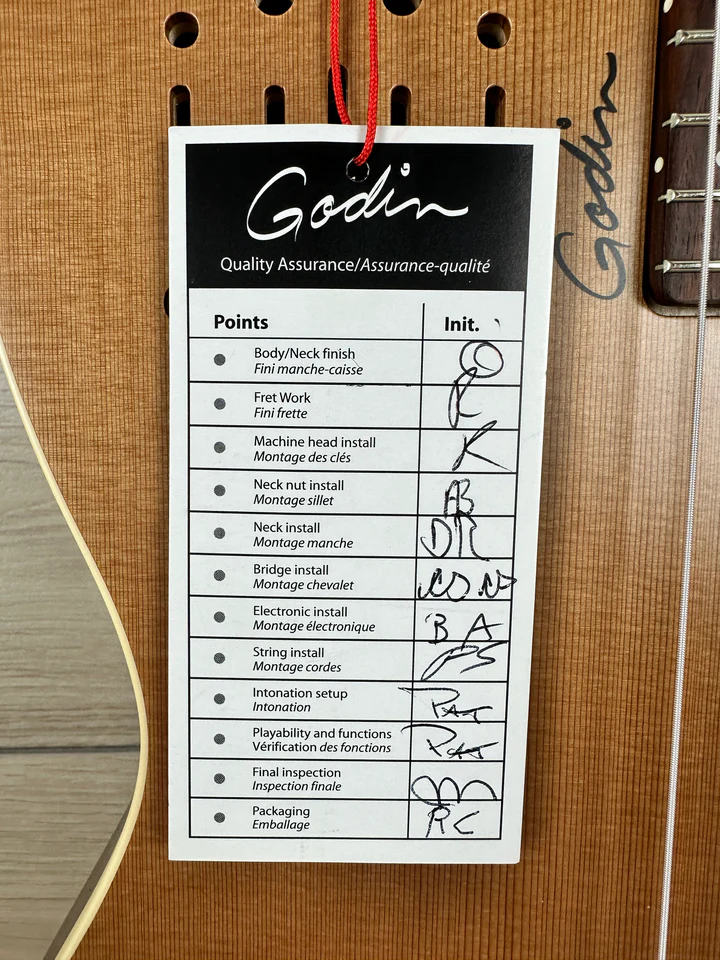 Godin
Quality Assurance/Assurance-qualité
Points Init.
Body/Neck finish
Fini manche-caisse
Fret Work
Fini frette
R
Machine head install
Montage des clés
K
Neck nut install
Montage sillet
AB
Neck install
Montage manche
DR
Bridge install
Montage chevalet
Electronic install
Montage électronique
B A
String install
Montage cordes
PS
Intonation setup
Intonation
PAT
Playability and functions
Vérification des fonctions
PAT
Final inspection
Inspection finale
Packaging
Emballage
RC
Godin